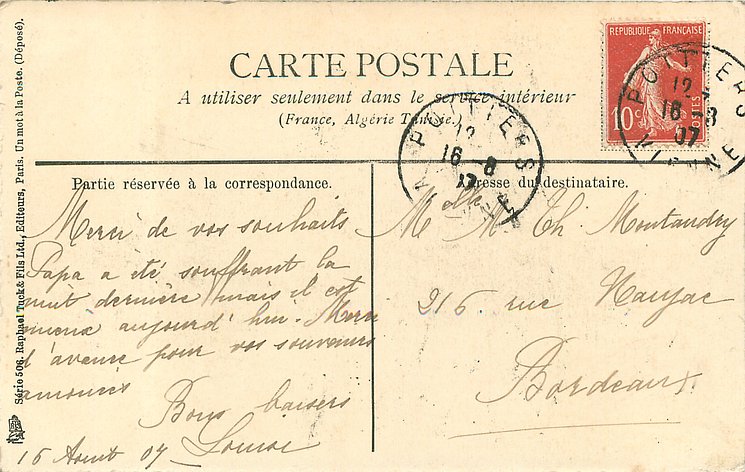 CARTE POSTALE
A utiliser seulement dans le service intérieur
(France, Algérie Tunisie.)
RÉPUBLIQUE FRANÇAISE
10c POSTES
POITIERS
12
16 - 8
07
VIENNE
POITIERS
12
16 8
07
VIENNE
Partie réservée à la correspondance.
Adresse du destinataire.
Merci de vos souhaits
Papa a été souffrant la
nuit dernière mais il est
mieux aujourd'hui. Merci
d'avance pour vos souvenirs
annoncés
Bons baisers
16 Août 07 Louise
Melle M Th Montaudry
216 rue Naujac
Bordeaux
Série 506. Raphael Tuck & Fils Ltd., Editeurs, Paris. Un mot à la Poste. (Déposé).